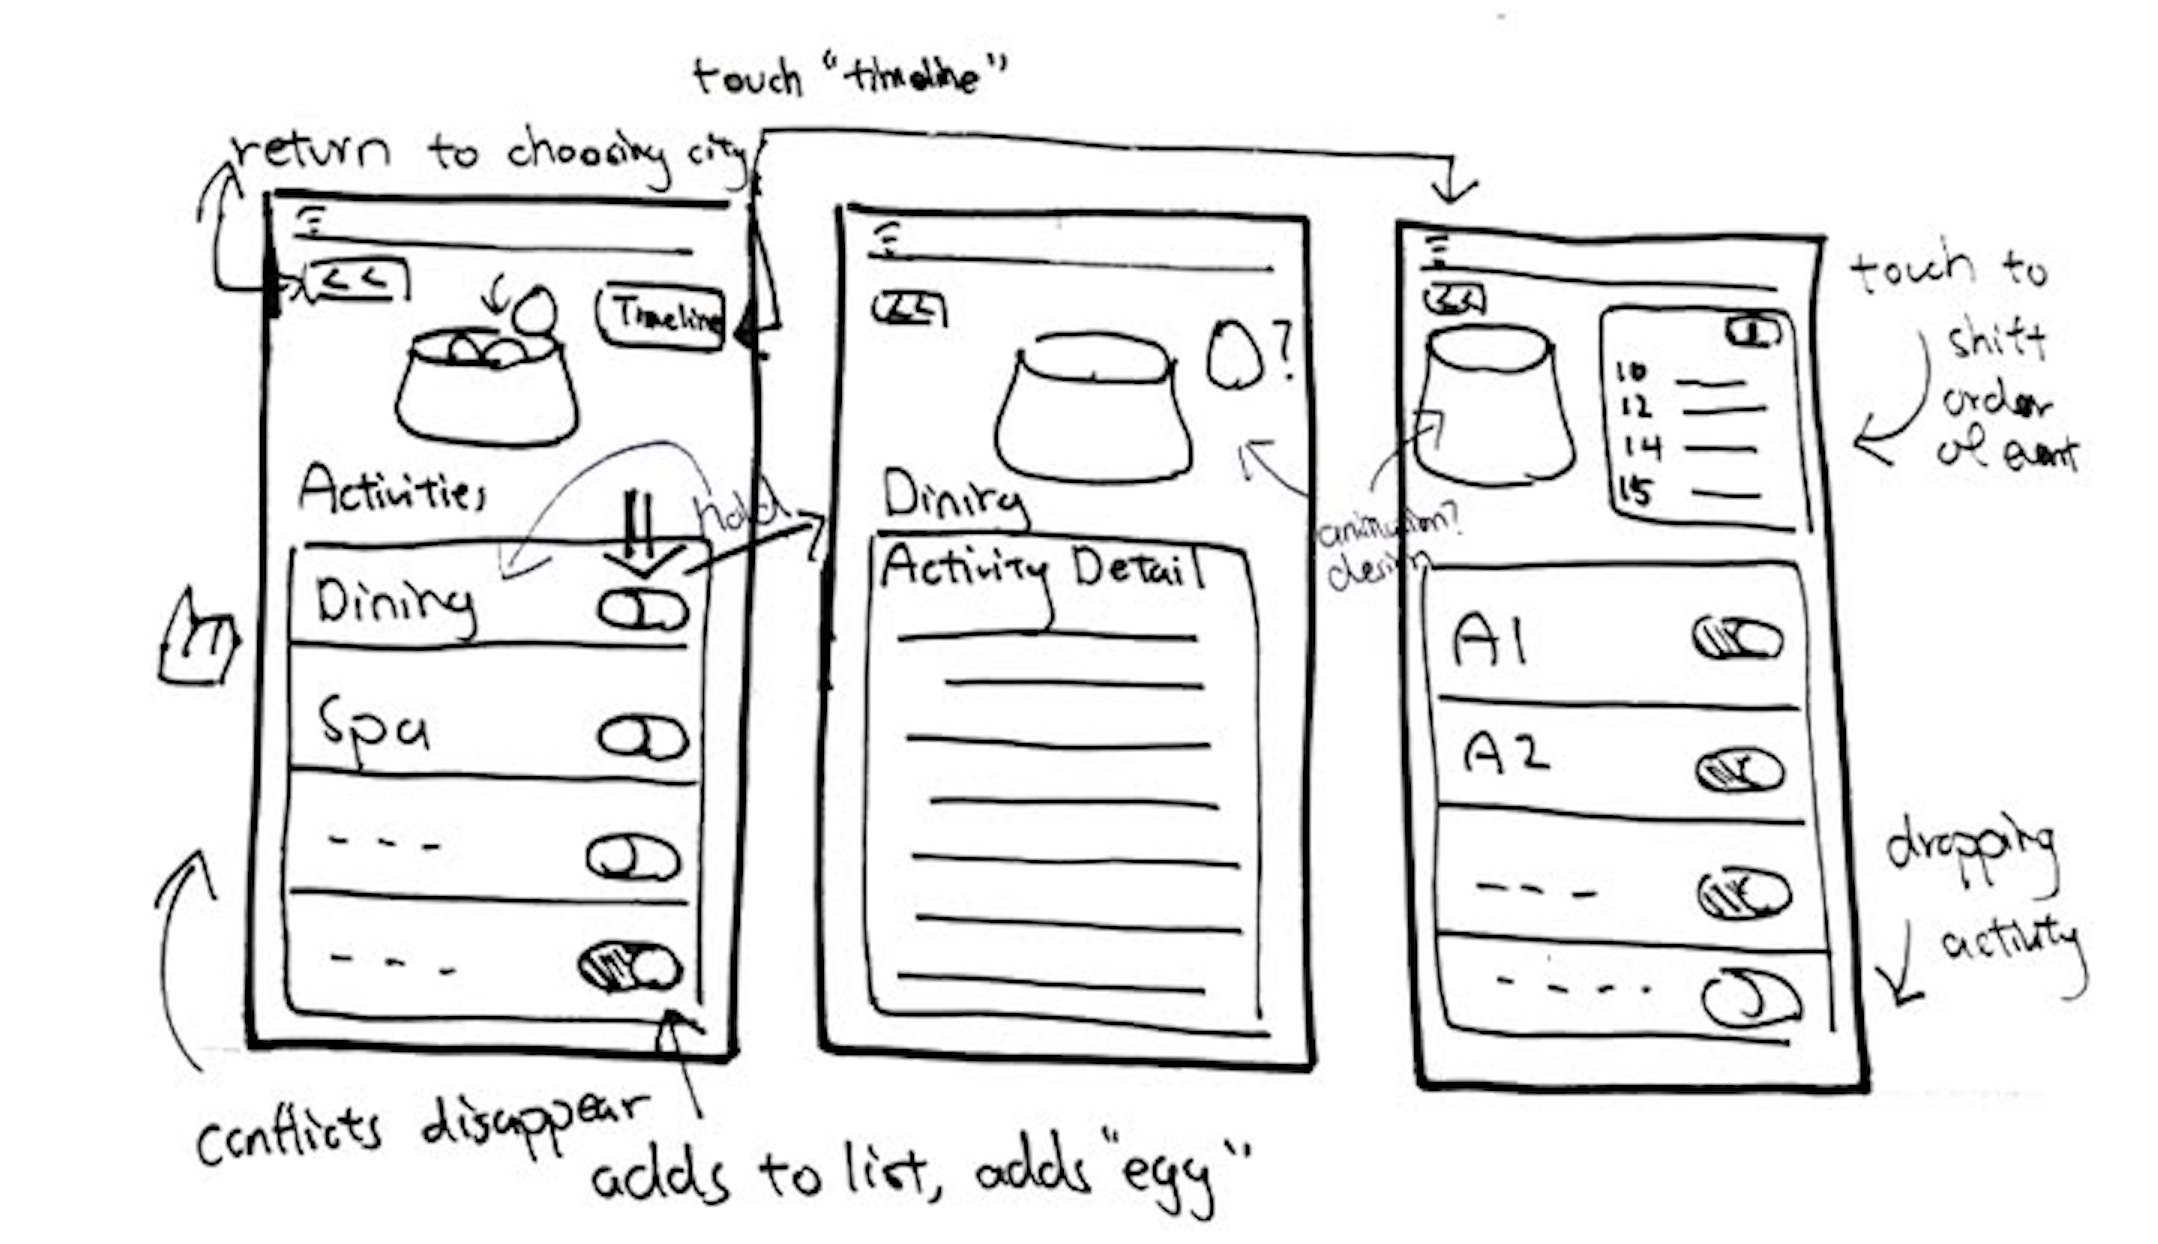 touch "timeline"
return to choosing city
<<
Timeline
Activities
hold
Dining
Spa
- - -
- - -
conflicts disappear
adds to list, adds "egg"
<<
?
Dining
Activity Detail
animation?
design
<<
10
12
14
15
A1
A2
- - -
- - - -
touch to
shift
order
of event
dropping
activity